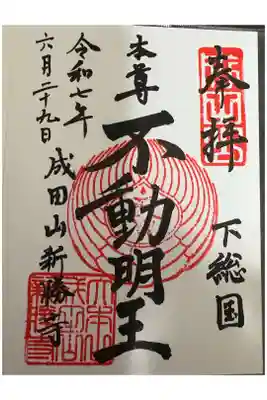 奉拝
下総国
本尊
不動明王
令和七年
六月二十九日
成田山新勝寺